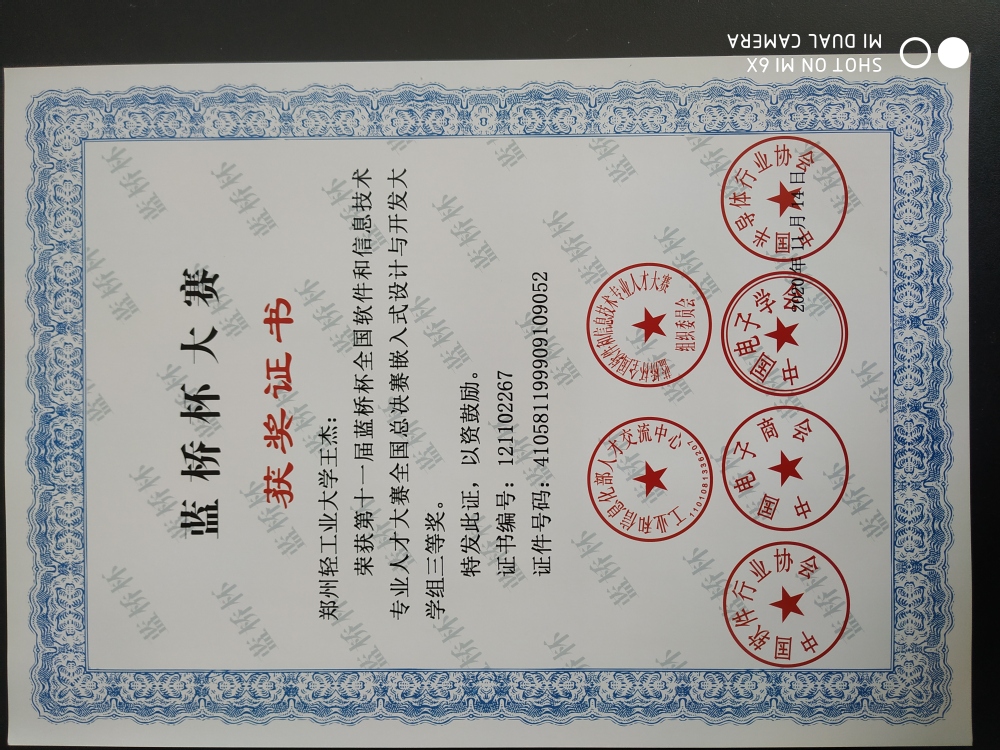 蓝桥杯大赛
获奖证书
郑州轻工业大学王杰：
荣获第十一届蓝桥杯全国软件和信息技术
专业人才大赛全国总决赛嵌入式设计与开发大
学组三等奖。
特发此证，以资鼓励。
证书编号：121102267
证件号码：410581199909109052
工业和信息化部人才交流中心
1101081336207
蓝桥杯全国软件和信息技术专业人才大赛
组织委员会
中国软件行业协会
中国电子商会
中国电子学会
中国半导体行业协会
2020年11月14日
蓝桥杯
SHOT ON MI 6X
MI DUAL CAMERA